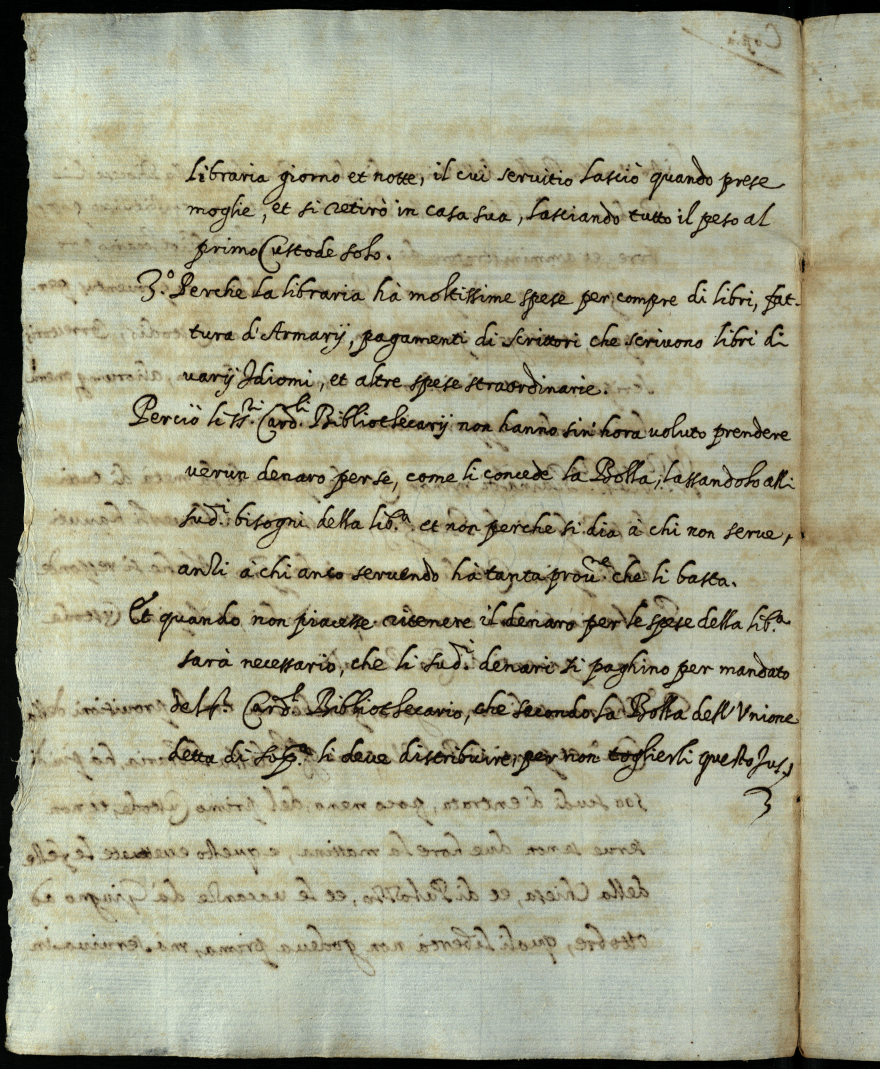 libraria giorno et notte, il cui servitio lasciò quando prese
moglie, et si retirò in casa sua, lasciando tutto il peso al
primo Custode solo.
3.º Perche la libraria hà moltissime spese per compre di libri, fat-
tura d'Armarij, pagamenti di scrittori che scrivono libri di
varij Idiomi, et altre spese straordinarie.
Perciò li SS.ri Card.li Bibliothecarij non hanno sin'hora voluto prendere
verun denaro per se, come li concede la Bolla, lassandolo alli
sud.i bisogni della lib.a et non perche si dia à chi non serve,
anzi à chi anco servendo hà tanta prov.e che li basta.
Et quando non piacesse ritenere il denaro per le spese della lib.a
sarà necessario, che li sud.i denari si paghino per mandato
del S.r Card.l Bibliothecario, che secondo la Bolla dell'Unione
detta di sop.a li deve distribuire, per non toglierli questo Jus.